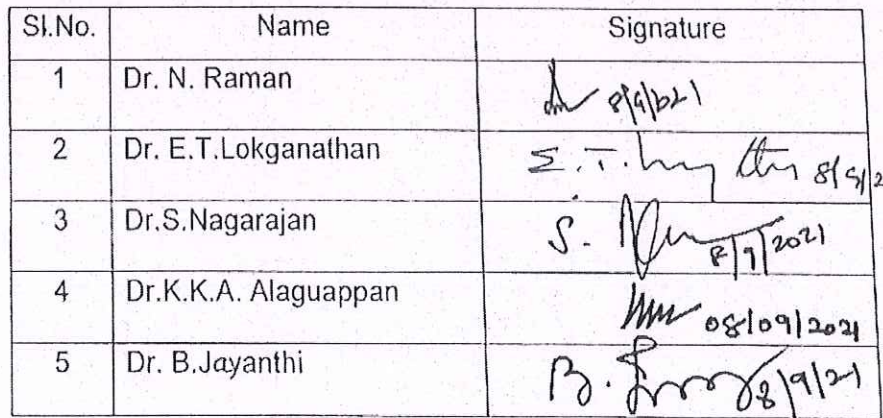 Sl.No. Name Signature
1 Dr. N. Raman 8/9/2021
2 Dr. E.T.Lokganathan E.T. 8/9/2
3 Dr.S.Nagarajan S. 8/9/2021
4 Dr.K.K.A. Alaguappan 08/09/2021
5 Dr. B.Jayanthi B. 8/9/21